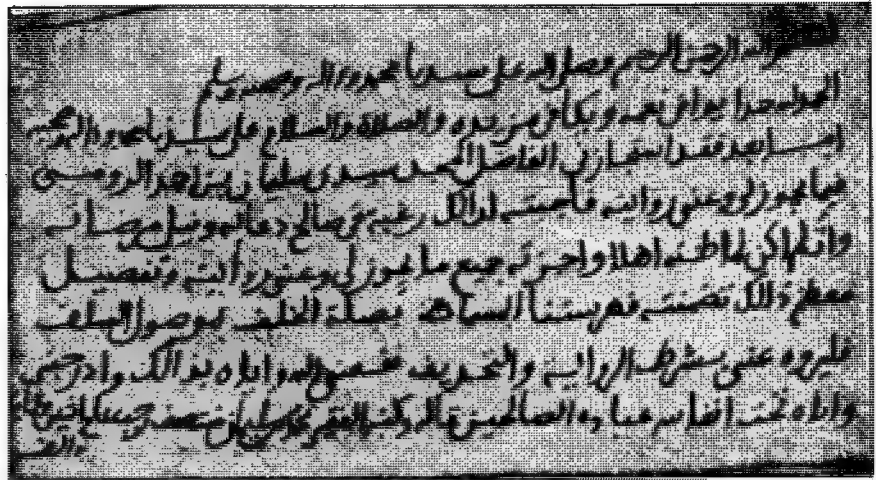 بسم الله الرحمن الرحيم وصلى الله على سيدنا محمد واله وصحبه وسلم
الحمد لله حمدا يوافي نعمه ويكافئ مزيده والصلاة والسلام على سيدنا محمد واله وصحبه
اما بعد فقد استجازني الفاضل الامجد سيدي سليمان بن احمد الرومي
فيما يجوز لي وعني روايته فأجبته لذالك رغبة في صالح دعائه ونيل مرضاته
وان لم اكن لما ظنه اهلا واجزته جميع ما يجوز لي وعني روايته وتفصيل
معظم ذالك تضمنته فهرستنا المسماة بصلة الخلف بموصول السلف
فليروه عني بشرط الرواية والتحديث نفعني الله واياه بذالك وادرجني
واياه تحت انفاس عباده الصالحين قاله وكتبه الفقير محمد بن سليمان
والف